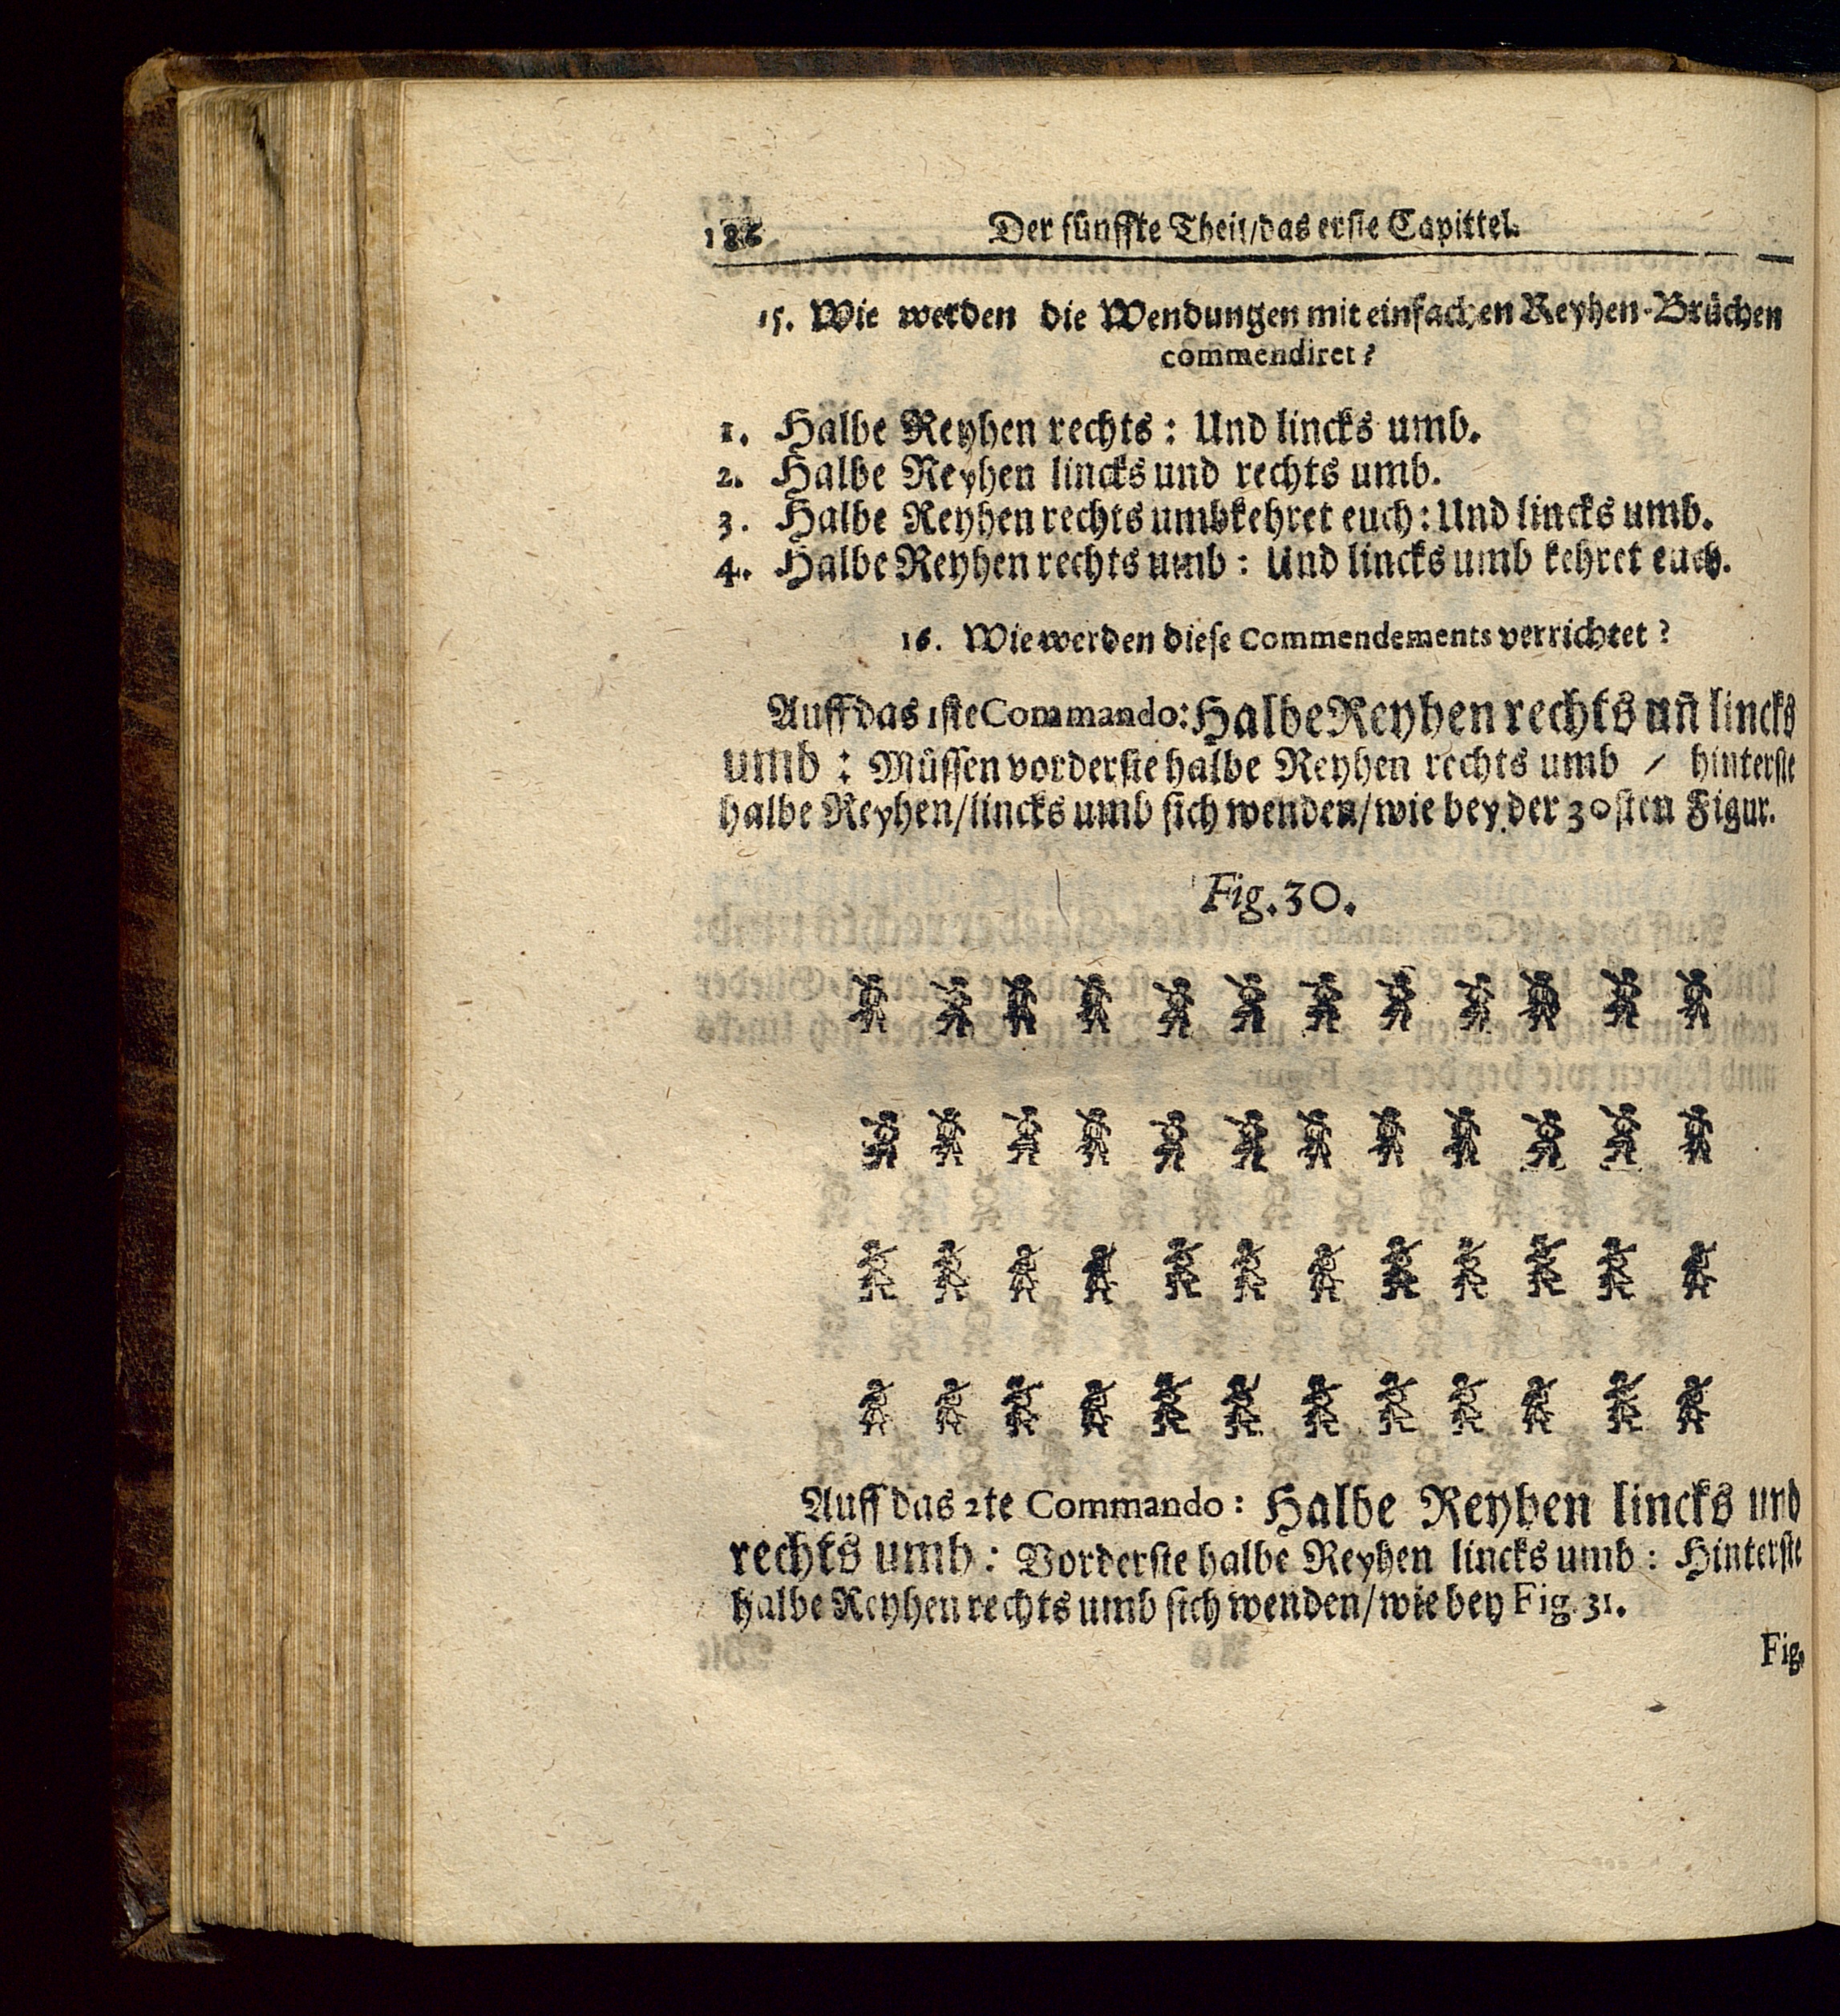 186
Der fünffte Theil/das erste Capittel.
15. Wie werden die Wendungen mit einfachen Reyhen-Brüchen
commendiret?
1. Halbe Reyhen rechts: Und lincks umb.
2. Halbe Reyhen lincks und rechts umb.
3. Halbe Reyhen rechts umbkehret euch: Und lincks umb.
4. Halbe Reyhen rechts umb: Und lincks umb kehret euch.
16. Wie werden diese Commendements verrichtet?
Auff das 1ste Commando: Halbe Reyhen rechts uñ lincks
umb: Müssen vorderste halbe Reyhen rechts umb / hinterste
halbe Reyhen/lincks umb sich wenden/wie bey der 30sten Figur.
Fig. 30.
Auff das 2te Commando: Halbe Reyhen lincks und
rechts umb: Vorderste halbe Reyhen lincks umb: Hinterste
halbe Reyhen rechts umb sich wenden/wie bey Fig. 31.
Fig.